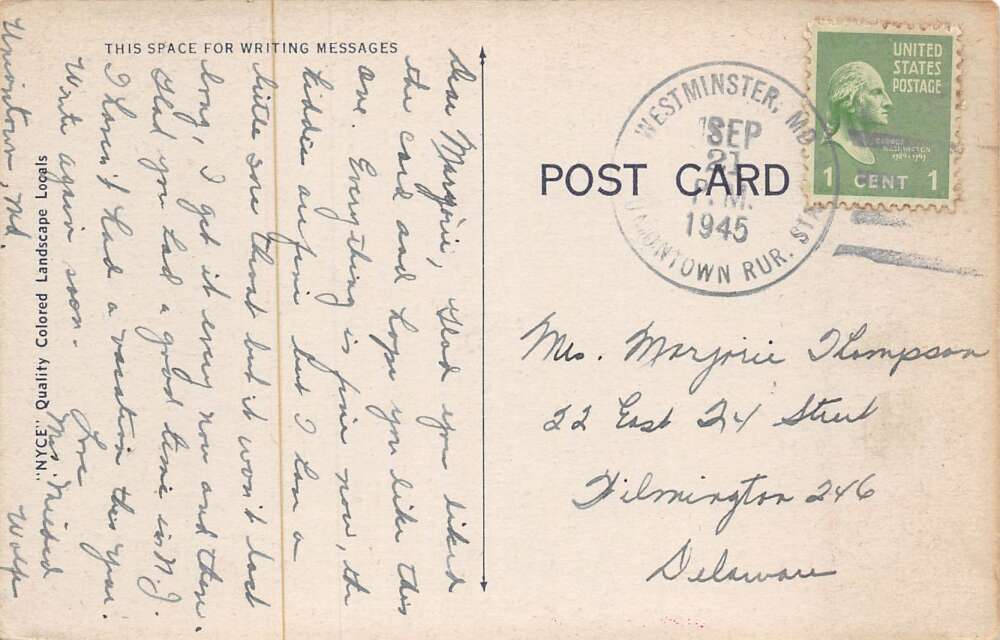 THIS SPACE FOR WRITING MESSAGES
Dear Marjorie, Glad you liked
the card and hope you like this
one. Everything is fine now, the
kiddie are fine but I have a
little sore throat but it won't last
long, I get it every now and then.
Glad you had a good time in N.J.
I haven't had a vacation this year.
Write again soon.
Love
Mrs. Mildred Wolfe
Uniontown, Md.
"NYCE" Quality Colored Landscape Locals
POST CARD
WESTMINSTER, MD
SEP
21
P.M.
1945
UNIONTOWN RUR. STA
UNITED
STATES
POSTAGE
GEORGE
WASHINGTON
1789-1797
1 CENT 1
Mrs. Marjorie Thompson
22 East 24 Street
Wilmington 246
Delaware